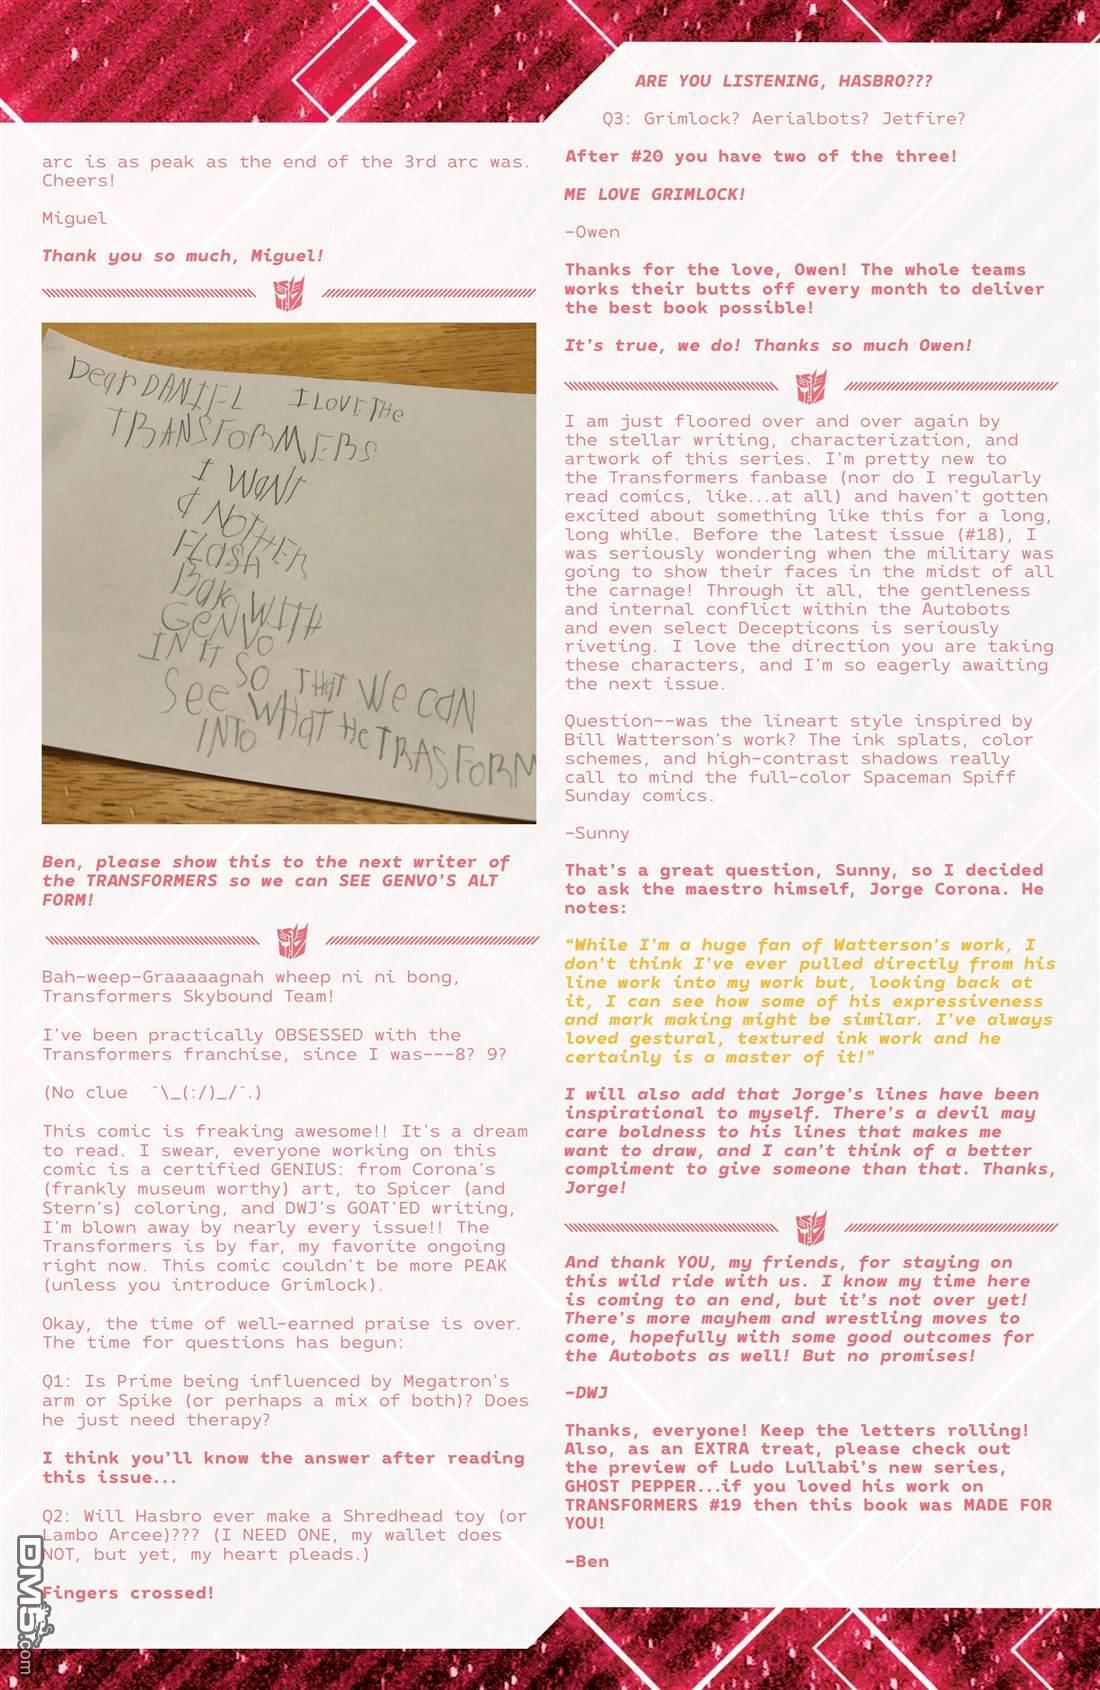 arc is as peak as the end of the 3rd arc was.
Cheers!
Miguel
Thank you so much, Miguel!
Dear DANIEL I LOVE THE
TRANSFORMERS
I WANT
A NOTHER
FLASH
Bake WITH
GENVO
IN IT SO THAT We CAN
See WHAT He TRASFORM
INTO
Ben, please show this to the next writer of
the TRANSFORMERS so we can SEE GENVO'S ALT
FORM!
Bah-weep-Graaaaagnah wheep ni ni bong,
Transformers Skybound Team!
I've been practically OBSESSED with the
Transformers franchise, since I was---8? 9?
(No clue ¯\_(:/)_/¯.)
This comic is freaking awesome!! It's a dream
to read. I swear, everyone working on this
comic is a certified GENIUS: from Corona's
(frankly museum worthy) art, to Spicer (and
Stern's) coloring, and DWJ's GOAT'ED writing,
I'm blown away by nearly every issue!! The
Transformers is by far, my favorite ongoing
right now. This comic couldn't be more PEAK
(unless you introduce Grimlock).
Okay, the time of well-earned praise is over.
The time for questions has begun:
Q1: Is Prime being influenced by Megatron's
arm or Spike (or perhaps a mix of both)? Does
he just need therapy?
I think you'll know the answer after reading
this issue...
Q2: Will Hasbro ever make a Shredhead toy (or
Lambo Arcee)??? (I NEED ONE, my wallet does
NOT, but yet, my heart pleads.)
Fingers crossed!
ARE YOU LISTENING, HASBRO???
Q3: Grimlock? Aerialbots? Jetfire?
After #20 you have two of the three!
ME LOVE GRIMLOCK!
-Owen
Thanks for the love, Owen! The whole teams
works their butts off every month to deliver
the best book possible!
It's true, we do! Thanks so much Owen!
I am just floored over and over again by
the stellar writing, characterization, and
artwork of this series. I'm pretty new to
the Transformers fanbase (nor do I regularly
read comics, like...at all) and haven't gotten
excited about something like this for a long,
long while. Before the latest issue (#18), I
was seriously wondering when the military was
going to show their faces in the midst of all
the carnage! Through it all, the gentleness
and internal conflict within the Autobots
and even select Decepticons is seriously
riveting. I love the direction you are taking
these characters, and I'm so eagerly awaiting
the next issue.
Question--was the lineart style inspired by
Bill Watterson's work? The ink splats, color
schemes, and high-contrast shadows really
call to mind the full-color Spaceman Spiff
Sunday comics.
-Sunny
That's a great question, Sunny, so I decided
to ask the maestro himself, Jorge Corona. He
notes:
"While I'm a huge fan of Watterson's work, I
don't think I've ever pulled directly from his
line work into my work but, looking back at
it, I can see how some of his expressiveness
and mark making might be similar. I've always
loved gestural, textured ink work and he
certainly is a master of it!"
I will also add that Jorge's lines have been
inspirational to myself. There's a devil may
care boldness to his lines that makes me
want to draw, and I can't think of a better
compliment to give someone than that. Thanks,
Jorge!
And thank YOU, my friends, for staying on
this wild ride with us. I know my time here
is coming to an end, but it's not over yet!
There's more mayhem and wrestling moves to
come, hopefully with some good outcomes for
the Autobots as well! But no promises!
-DWJ
Thanks, everyone! Keep the letters rolling!
Also, as an EXTRA treat, please check out
the preview of Ludo Lullabi's new series,
GHOST PEPPER...if you loved his work on
TRANSFORMERS #19 then this book was MADE FOR
YOU!
-Ben
DMS.com